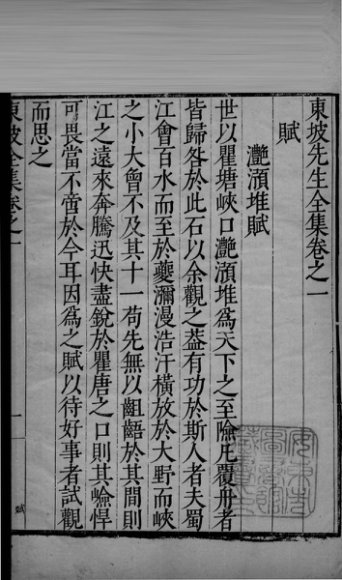 東坡先生全集卷之一
賦
灔澦堆賦
世以瞿塘峽口灔澦堆爲天下之至險凡覆舟者
皆歸咎於此石以余觀之葢有功於斯人者夫蜀
江會百水而至於夔瀰漫浩汗橫放於大野而峽
之小大曾不及其十一苟先無以齟齬於其間則
江之遠來奔騰迅快盡銳於瞿唐之口則其嶮悍
可畏當不啻於今耳因爲之賦以待好事者試觀
而思之
東坡全集卷之一
一
賦